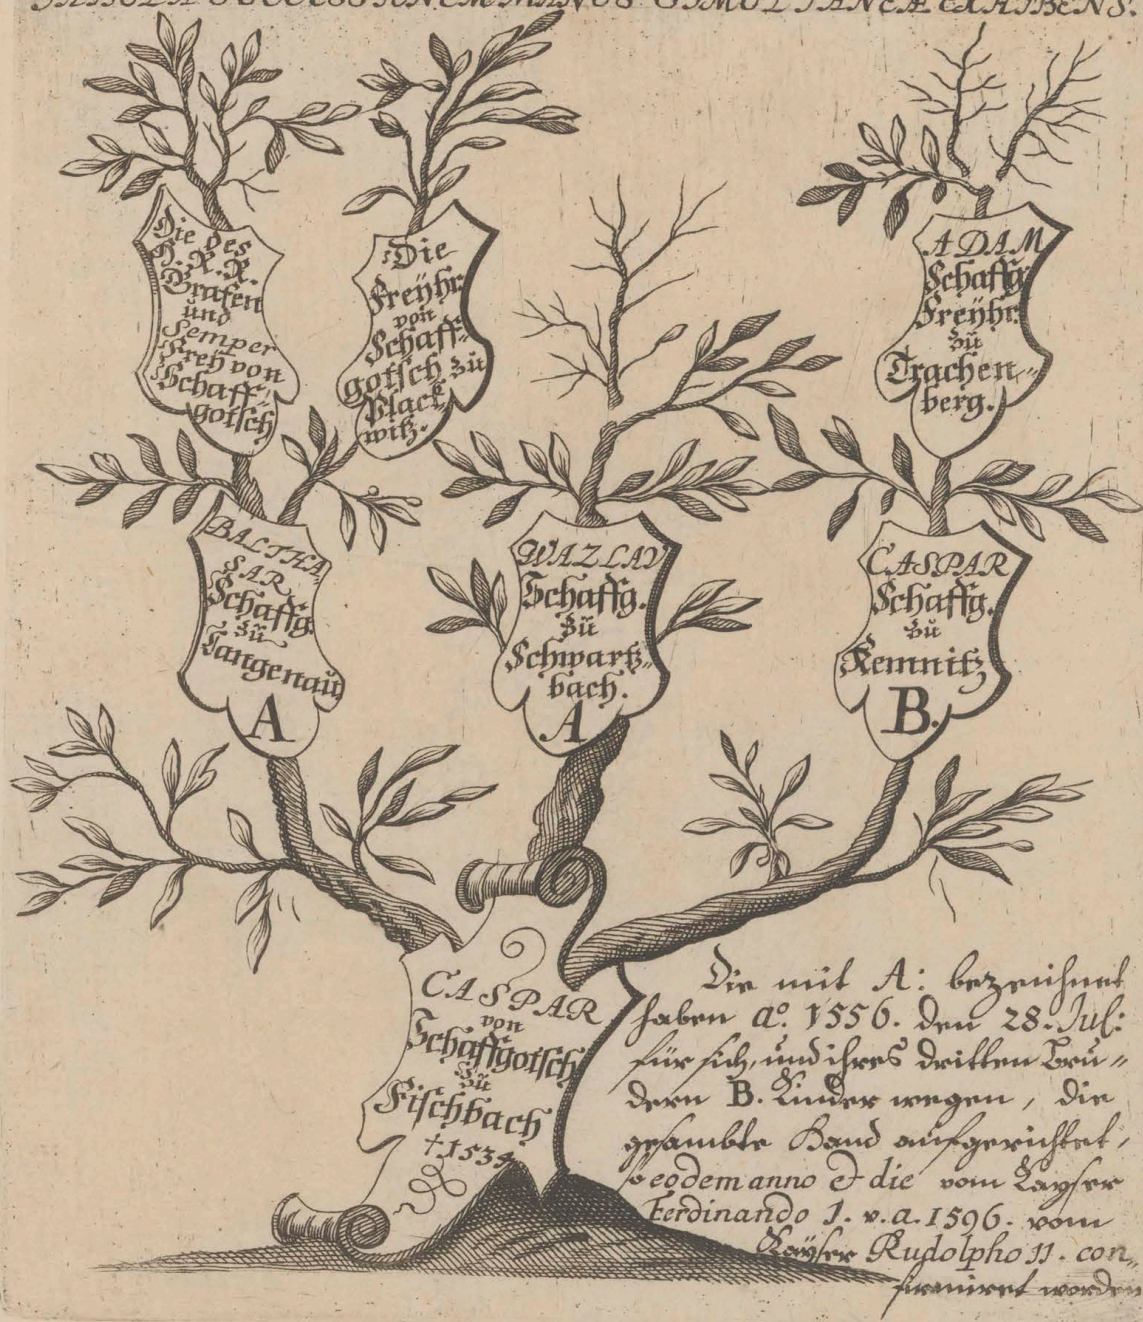 TABULA SUCCESSIONEM MANUS SIMULTANEÆ EXHIBENS.
Die des
H. R. R.
Grafen
und
Semper
Freÿ von
Schaff-
gotsch
Die
Freÿhr.
von
Schaff-
gotsch zu
Plack
witz.
ADAM
Schaffg
Freÿhr.
zu
Trachen-
berg.
BALTHA,
SAR
Schaffg.
zu
Langenau
A
WAZLAV
Schaffg.
zu
Schwartz-
bach.
A
CASPAR
Schaffg.
zu
Kemnitz
B.
CASPAR
von
Schaffgotsch
zu
Fischbach
† 1534
Die mit A: bezeichnet
haben aº. 1556. den 28. Jul:
für sich, und ihres dritten Bru-
dern B. Kinder wegen, die
gesambte Hand aufgerichtet,
so eodem anno et die vom Kayser
Ferdinando I. v. a. 1596. vom
Kaÿser Rudolpho II. con-
firmiret worden